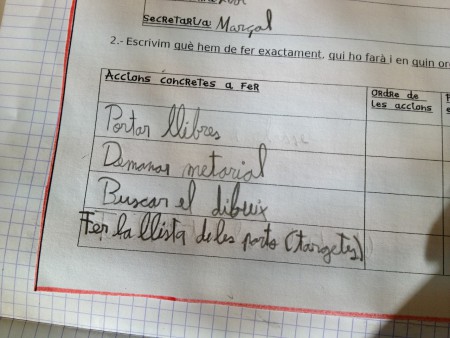 Secretari/a Marçal
2.- Escrivim què hem de fer exactament, qui ho farà i en quin or
Accions concretes a fer
Ordre de
les accions
Portar llibres
Demanar metarial
Buscar el dibuix
Fer la llista de les parts (targetes)